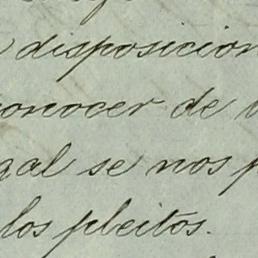 disposicion
conocer de
gal se nos p
los pleitos.